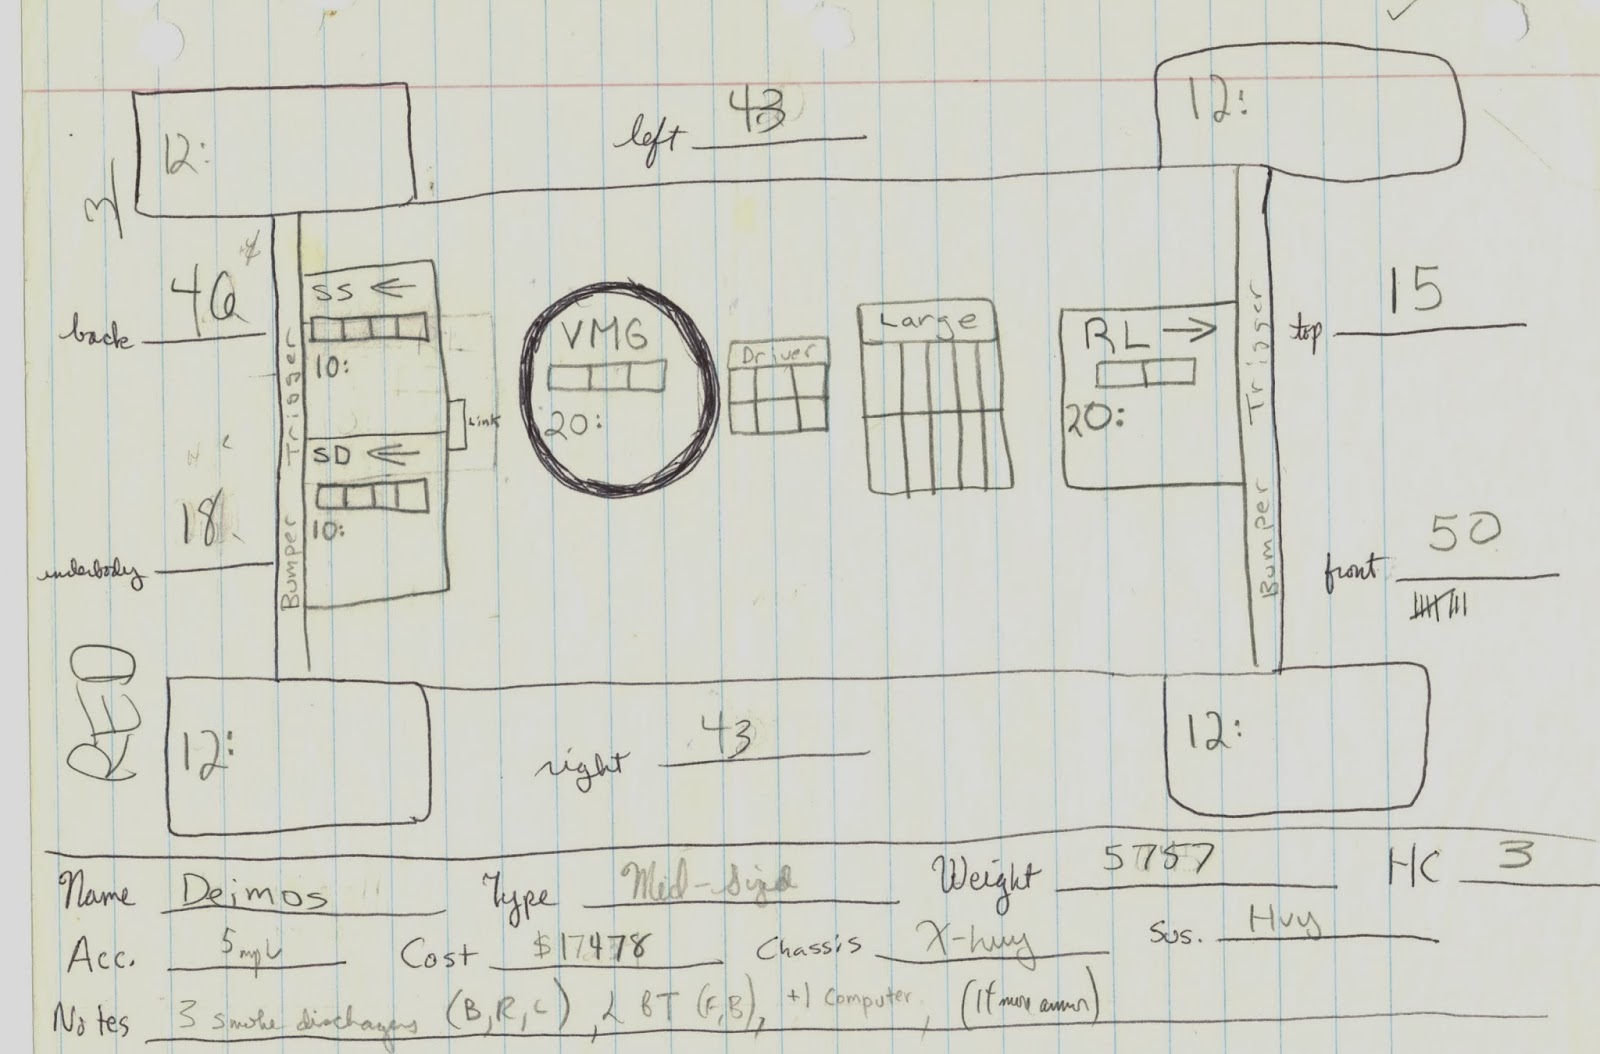 12:
left 43
12:
3
back 40
SS ←
10:
Bumper Trigger
Link
SD ←
10:
underbody 18
VMG
20:
Driver
Large
RL →
20:
Bumper Trigger
top 15
front 50
RED
12:
right 43
12:
Name Deimos Type Mid-Sized Weight 5757 HC 3
Acc. 5mph Cost $17478 Chassis X-hvy Sus. Hvy
Notes 3 smoke dischagers (B,R,L), BT (F,B), +1 Computer, (1pt more armor)